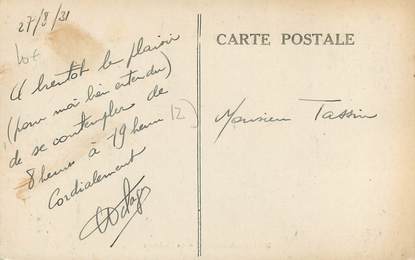 27/8/31
CARTE POSTALE
A bientôt le plaisir
(pour moi bien entendu)
de se contempler de
8 heures à 19 heures 12
Cordialement
Monsieur Tassin